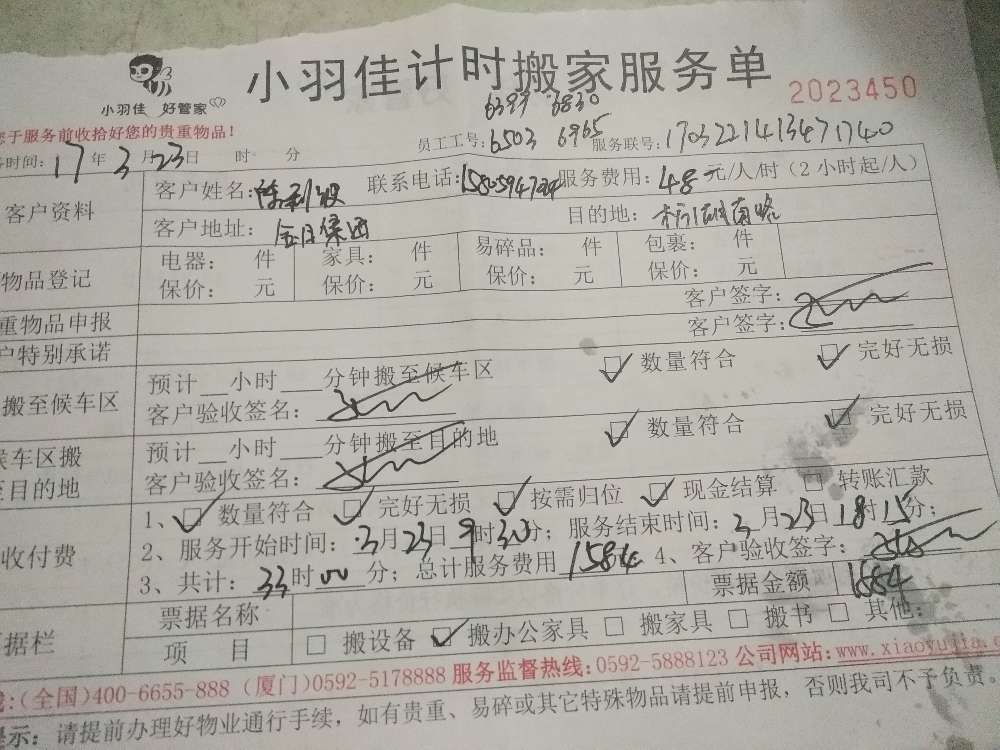 小羽佳 好管家
小羽佳计时搬家服务单
2023450
您于服务前收拾好您的贵重物品!
6399 6830
务时间: 17年3月23日 时 分 员工工号: 6503 6965 服务联号: 1703221413471740
客户资料 客户姓名: 联系电话: 服务费用: 48元/人/时 (2小时起/人)
客户地址: 目的地:
物品登记 电器: 件 家具: 件 易碎品: 件 包裹: 件
保价: 元 保价: 元 保价: 元 保价: 元
重物品申报 客户签字:
户特别承诺 客户签字:
搬至候车区 预计__小时___分钟搬至候车区 数量符合 完好无损
客户验收签名:
候车区搬 预计__小时___分钟搬至目的地 数量符合 完好无损
至目的地 客户验收签名:
收付费 1、 数量符合 完好无损 按需归位 现金结算 转账汇款
2、服务开始时间: 3月23日9时30分; 服务结束时间: 3月23日18时15分;
3、共计: 33时00分; 总计服务费用 1584 4、客户验收签字:
据栏 票据名称 票据金额 1584
项 目 搬设备 搬办公家具 搬家具 搬书 其他:
(全国)400-6655-888 (厦门)0592-5178888 服务监督热线:0592-5888123 公司网站: www.xiaoyujia.
提示: 请提前办理好物业通行手续, 如有贵重、易碎或其它特殊物品请提前申报, 否则我司不予负责。